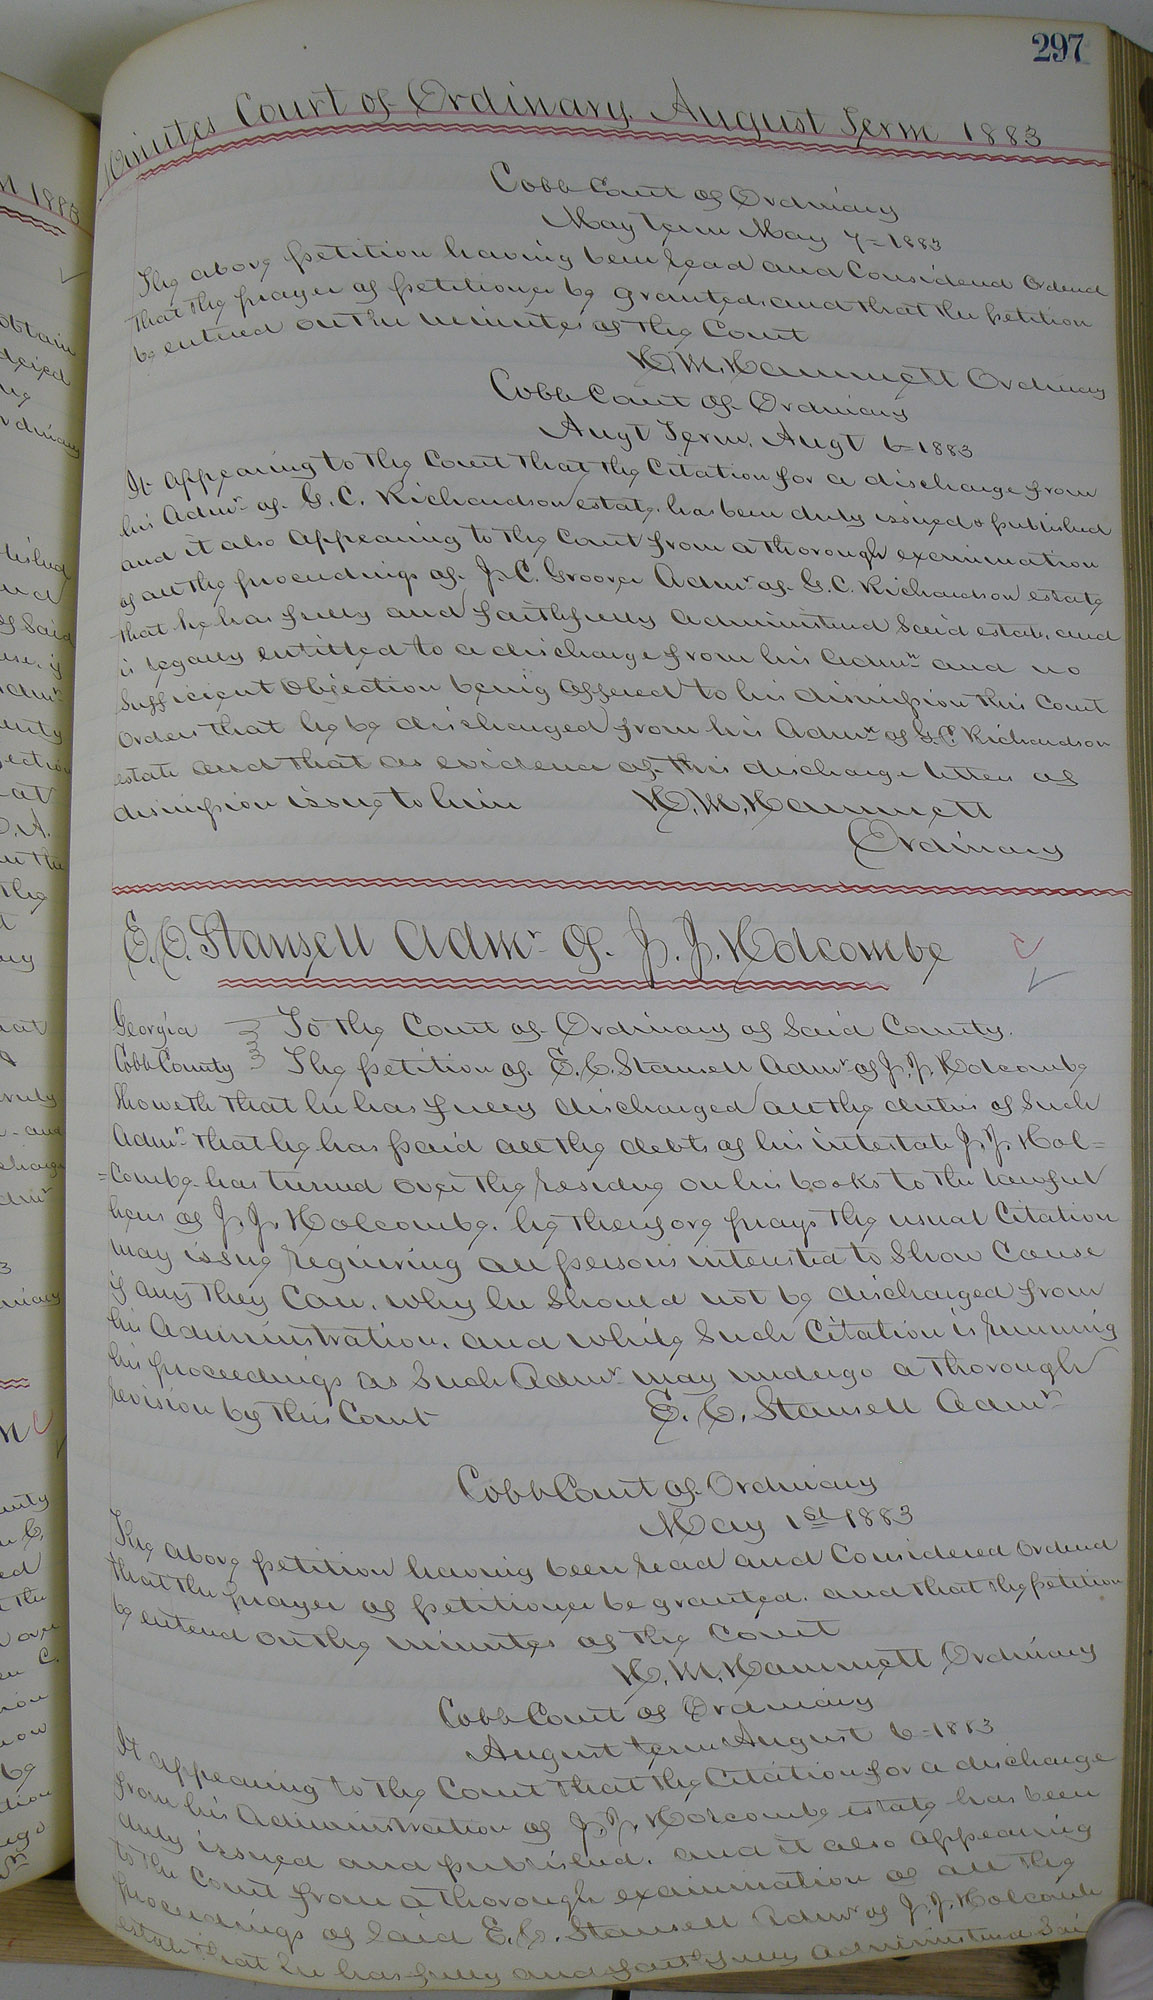 297
Minutes Court of Ordinary August Term 1883
Cobb Court of Ordinary
May Term May 7=1883
The above petition having been read and considered ordered
that the prayer of petitioner be granted and that the petition
be entered on the minutes of the Court
H. M. Hammett Ordinary
Cobb Court of Ordinary
Augt Term, Augt 6-1883
It appearing to the Court that the Citation for a discharge from
his Admr. of G. C. Richardson estate has been duly issued & published
and it also appearing to the Court from a thorough examination
of all the proceedings of J. C. Groover Admr of G. C. Richardson estate
that he has fully and faithfully administered said estate, and
is legally entitled to a discharge from his admn and no
sufficient objection being offered to his dismission this Court
orders that he be discharged from his Admn of G. C. Richardson
estate and that as evidence of this discharge letters of
dismission issue to him H. M. Hammett
Ordinary
E. C. Stansell Admr of J. J. Holcombe
Georgia To the Court of Ordinary of said County.
Cobb County The petition of E. C. Stansell Admr of J. J. Holcombe
showeth that he has fully discharged all the duties of such
Admr that he has paid all the debts of his intestate J. J. Hol=
=combe has turned over the residue on his books to the lawful
heirs of J. J. Holcombe. he therefore prays the usual Citation
may issue requiring all persons interested to show cause
if any they can, why he should not be discharged from
his Administration, and while such Citation is running
his proceedings as such Admr may undergo a thorough
revision by this Court E. C. Stansell Admr
Cobb Court of Ordinary
May 1st 1883
The above petition having been read and considered ordered
that the prayer of petitioner be granted. and that the petition
be entered on the minutes of the Court
H. M. Hammett Ordinary
Cobb Court of Ordinary
August term August 6-1883
It appearing to the Court that the Citation for a discharge
from his Administration of J. J. Holcombe estate has been
duly issued and published. and it also appearing
to the Court from a thorough examination of all the
proceedings of said E. C. Stansell Admr of J. J. Holcomb
estate that he has fully and faithfully administered Sai